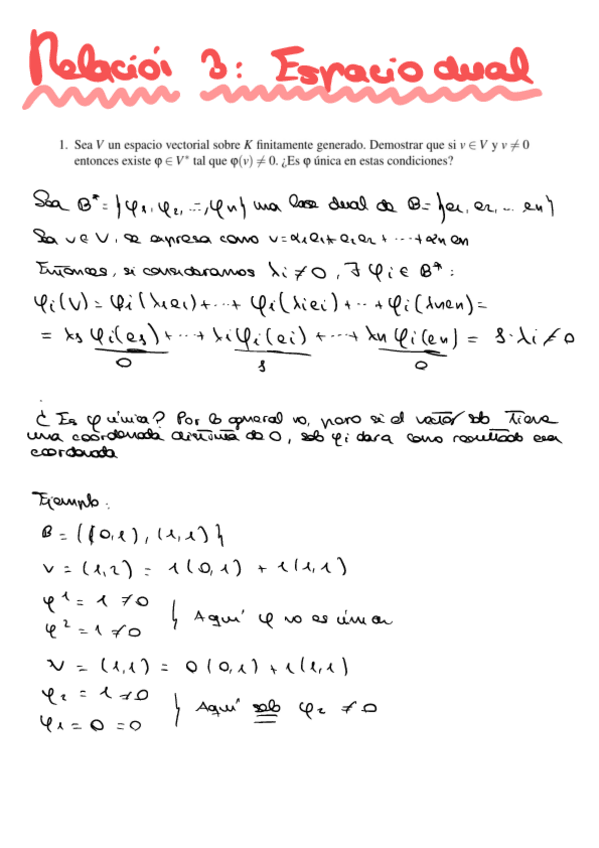 Relación 3: Espacio dual
1. Sea V un espacio vectorial sobre K finitamente generado. Demostrar que si v ∈ V y v ≠ 0
entonces existe φ ∈ V* tal que φ(v) ≠ 0. ¿Es φ única en estas condiciones?
Sea B* = {φ1, φ2, ..., φn} una base dual de B = {e1, e2, ... en}
Sea v ∈ V, se expresa como v = α1e1 + α2e2 + ... + αnen
Entonces, si consideramos λi ≠ 0, ∃ φi ∈ B* :
φi(v) = φi(λ1e1) + ... + φi(λiei) + ... + φi(λnen) =
= λ1 φi(e1) + ... + λi φi(ei) + ... + λn φi(en) = 1·λi ≠ 0
0 1 0
¿Es φ única? Por lo general no, pero si el vector solo tiene
una coordenada distinta de 0, solo φi dará como resultado esa
coordenada
Ejemplo:
B = {(0,1), (1,1)}
v = (1,2) = 1(0,1) + 1(1,1)
φ¹ = 1 ≠ 0
φ² = 1 ≠ 0
} Aquí φ no es única
v = (1,1) = 0(0,1) + 1(1,1)
φ2 = 1 ≠ 0
φ1 = 0 = 0
} Aquí solo φ2 ≠ 0